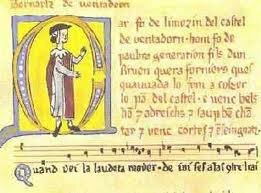 Bernartz de ventadorn
ar fo de limozin del castel
de ventadorn. hom fo de
paubra generation fils dun
quera forniers ques
lo forn a cozer
lo pa del castel. e venc bels
hom & adreichs & saup ben chā
tar & venc cortes &
Quand vei la laudeta mover. de ioi ses alas rai